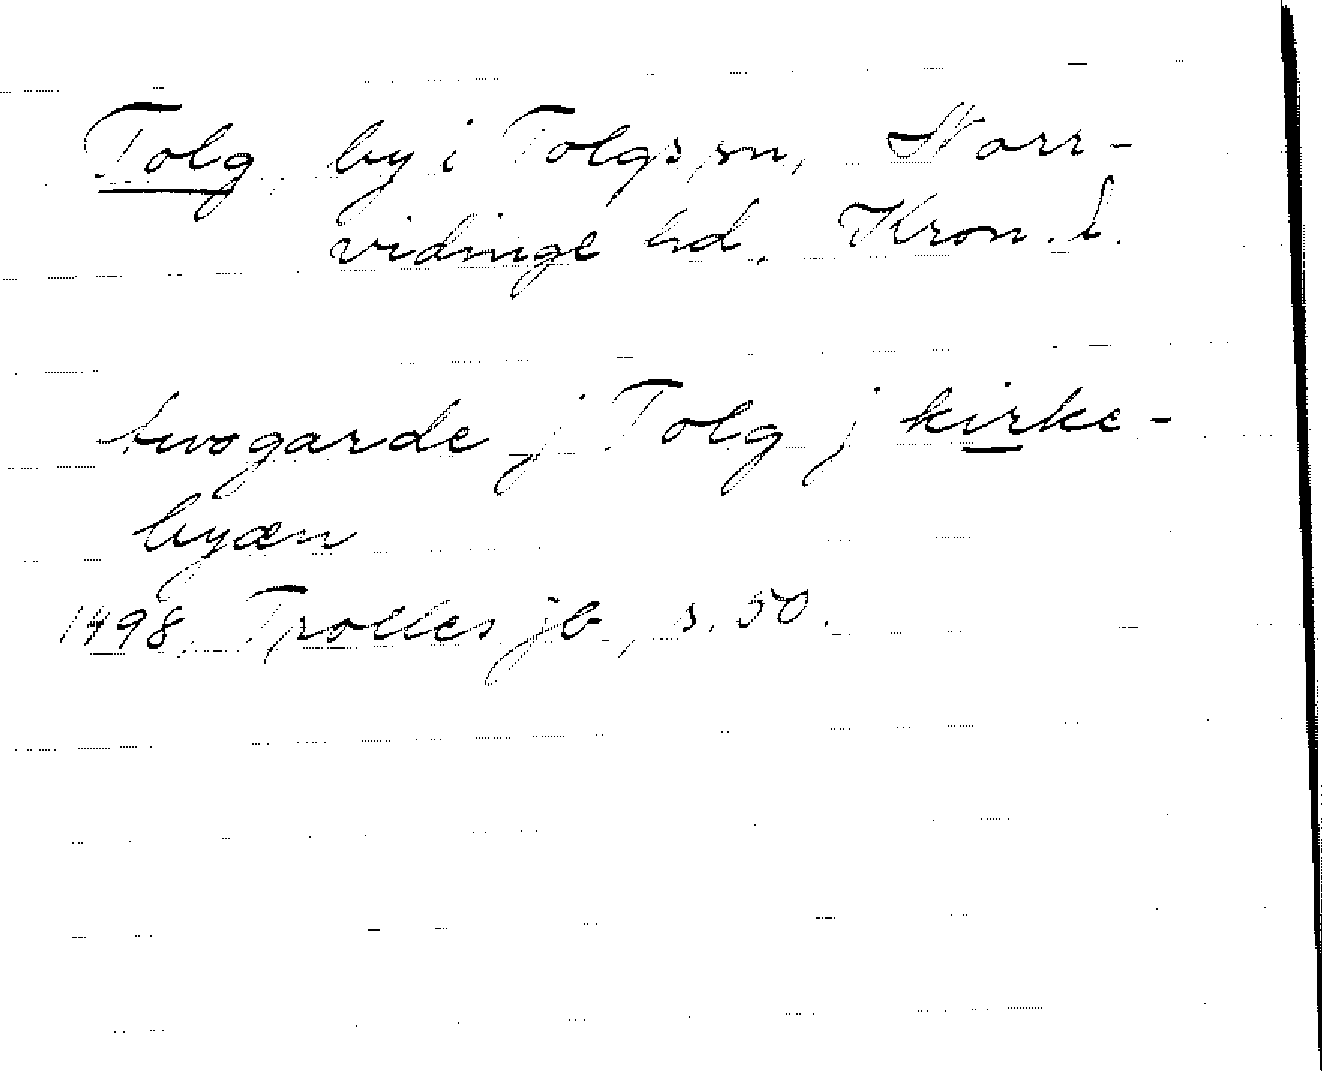 Tolg, by i Tolgs sn, Norr-
vidinge hd. Kron. l.
twogarde j Tolg j kirke-
byæn
1498. Trolles jb, s. 50.